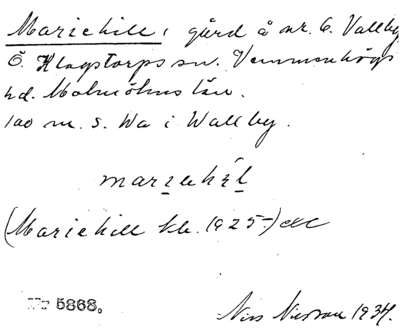 Mariehill, gård å nr. 6. Vallby
Ö. Klagstorps sn. Vemmenhögs
hd. Malmöhus län.
100 m. S. Wa i Wallby.
(Mariehill kb. 1925-) etc
Nr 5868.
Nils Nilsson 1934.